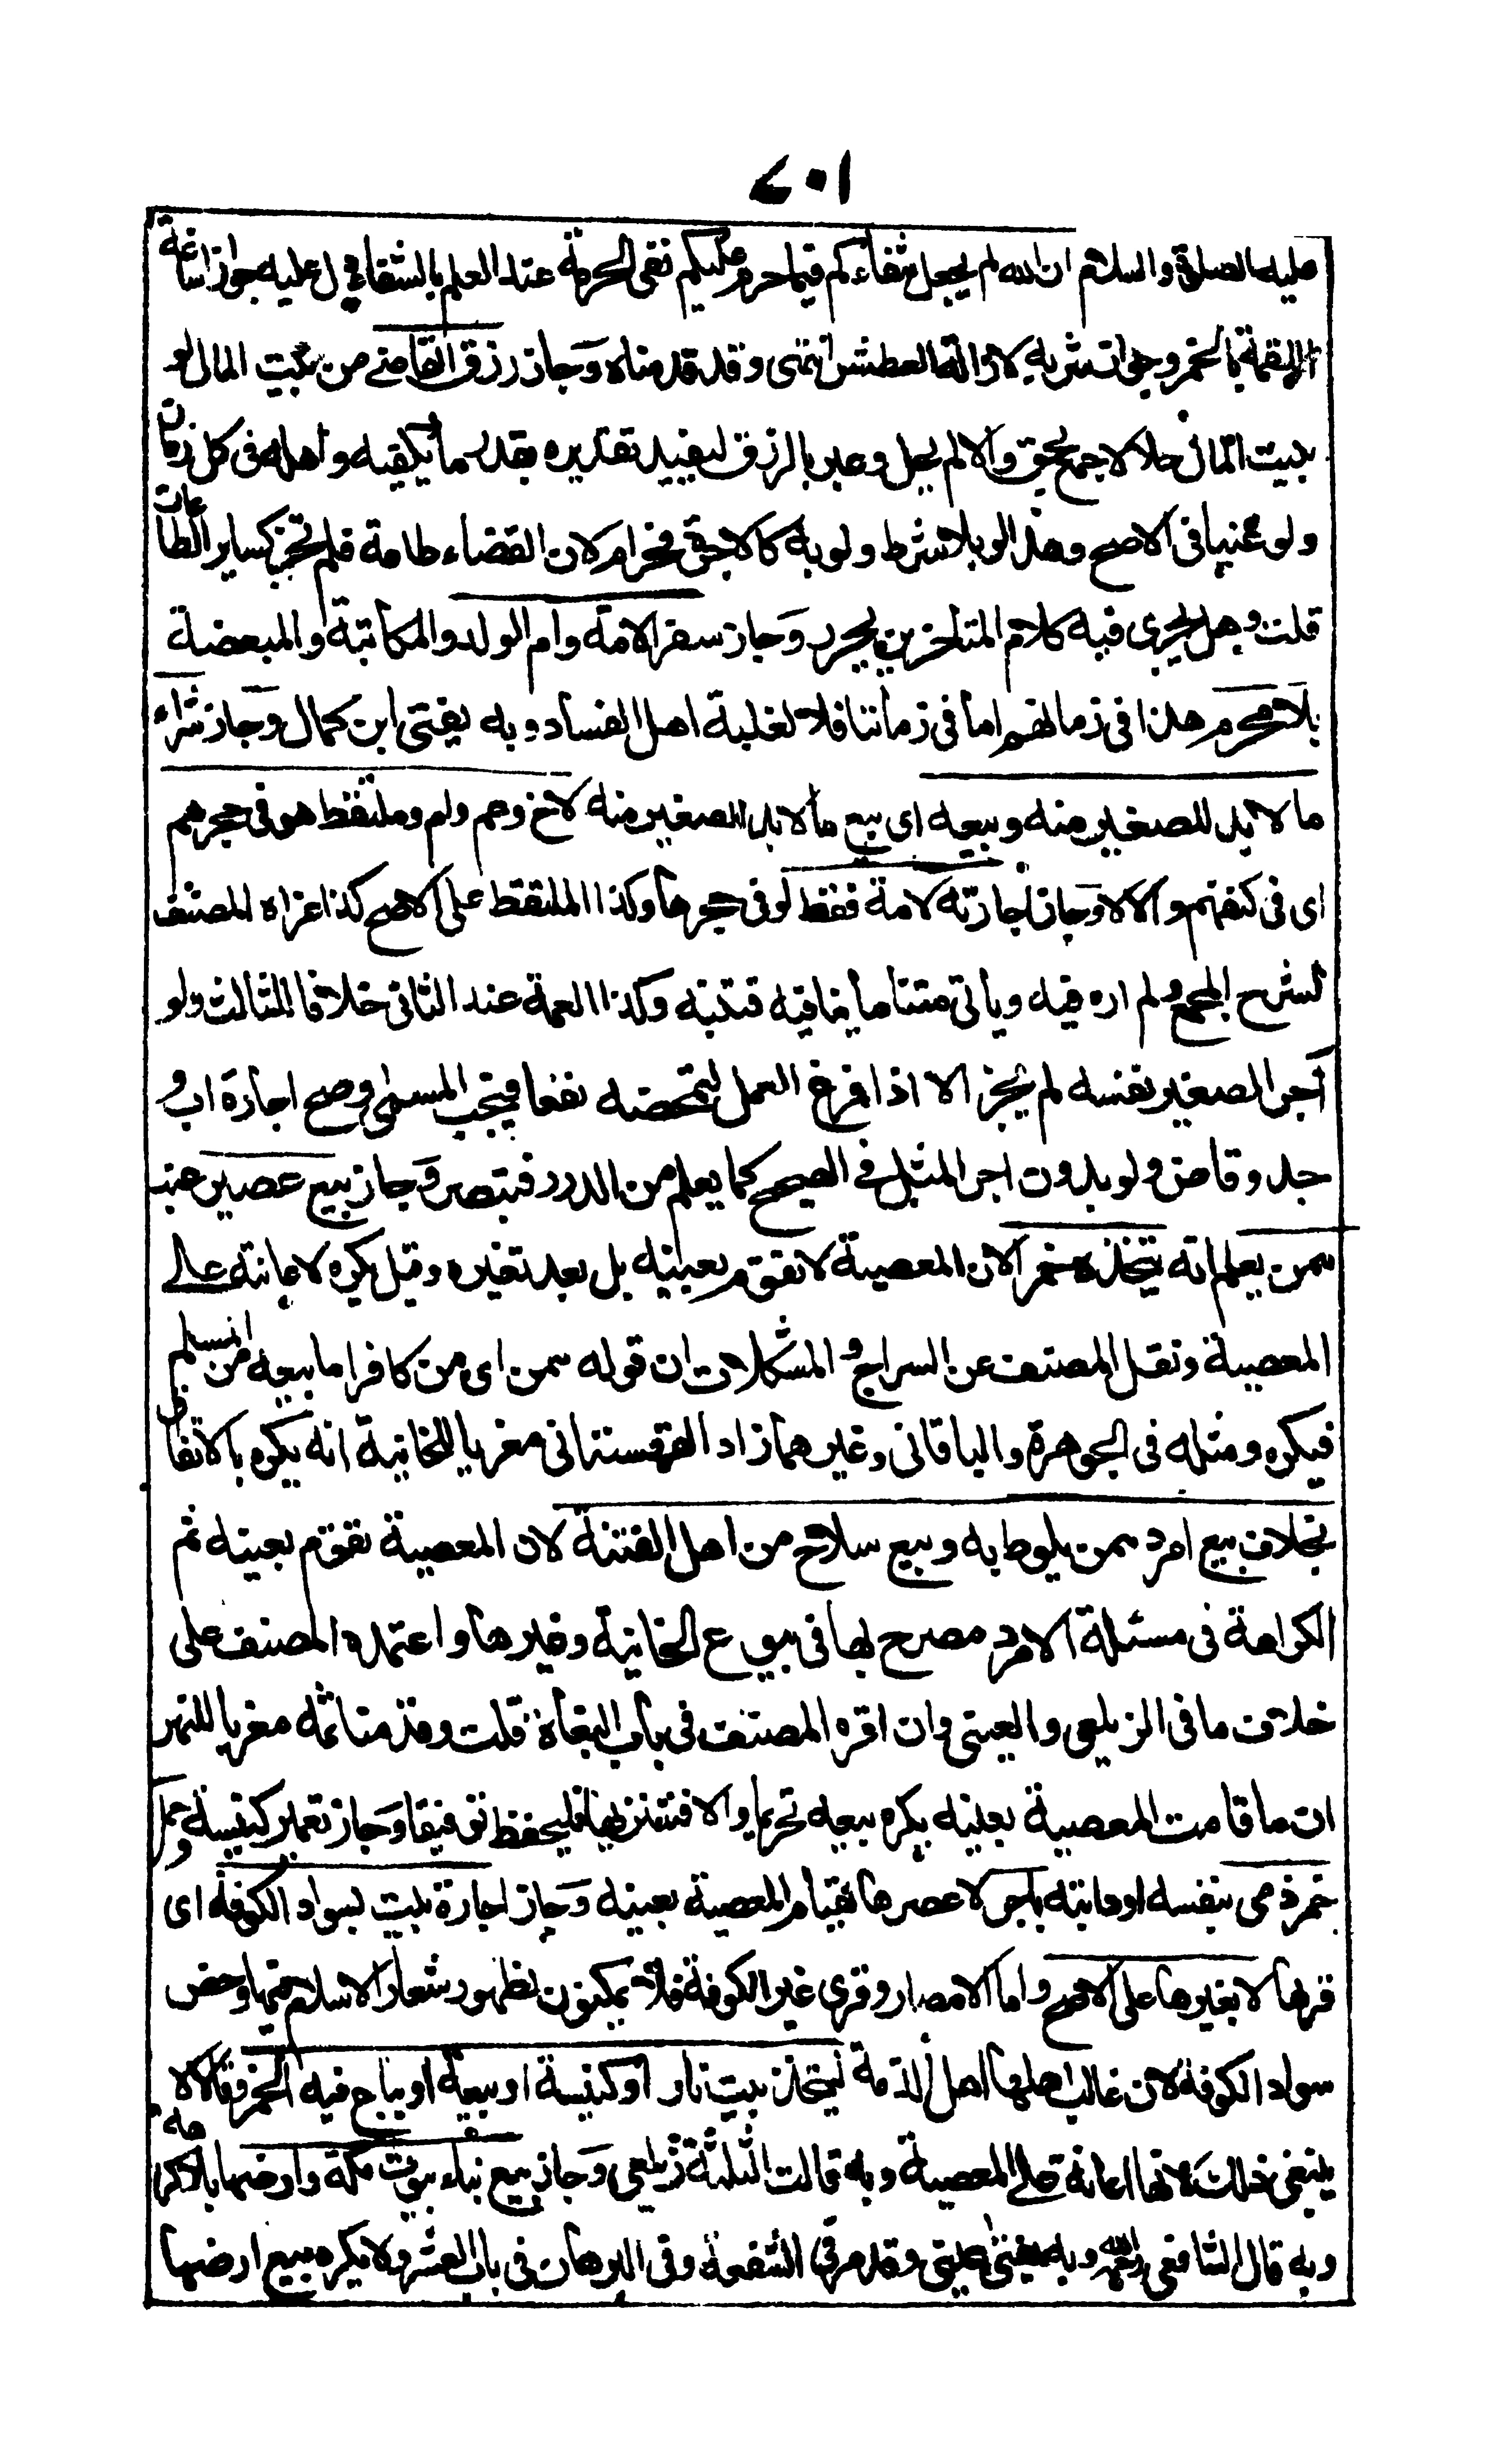 ٧٠١
عليه الصلوة والسلام ان الله لم يجعل شفاءكم فيما حرم عليكم نفى الحرمة عند العلم بالشفاء دل عليه جواز اساغة
اللقمة بالخمر وجواز شربه لازالة العطش انتهى وقد قدمناه وجاز رزق القاضى من بيت المال لو
بيت المال حلالا جمع بحق والا لم يحل وعبر بالرزق ليفيد تقديره بقدر ما يكفيه واهله فى كل زمان
ولو غنيا فى الاصح وهذا لو بلا شرط ولو به كالاجرة فحرام لان القضاء طاعة فلم تجز كساير الطاعات
قلت وهل يجرى فيه كلام المتاخرين يحرر وجاز سفر الامة وام الولد والمكاتبة والمبعضة
بلا محرم هذا فى زمانهم اما فى زماننا فلا لغلبة اهل الفساد وبه يفتى ابن كمال وجاز شراء
ما لا بد للصغير منه وبيعه اى بيع ما لا بد للصغير منه لاخ وعم وام وملتقط هو فى حجرهم
اى فى كنفهم والا لا وجاز اجارته لامه فقط لو فى حجرها وكذا الملتقط على الاصح كذا عزاه المصنف
لشرح المجمع ولم اره فيه وياتى متنا ما ينافيه فتنبه وكذا العمه عند الثانى خلافا للثالث ولو
آجر الصغير نفسه لم يجز الا اذا فرغ العمل لتمحضه نفعا فيجب المسمى وصح اجارة اب و
جد وقاض ولو بدون اجر المثل فى الصحيح كما يعلم من الدرر فتبصر وجاز بيع عصير عنب
ممن يعلم انه يتخذه خمرا لان المعصية لا تقوم بعينه بل بعد تغيره وقيل يكره لاعانته على
المعصية ونقل المصنف عن السراج و المشكلات ان قوله ممن اى من كافر اما بيعه من المسلم
فيكره ومثله فى الجوهرة والباقانى وغيرهما زاد القهستانى معزيا للخانية انه يكره بالاتفاق
بخلاف بيع امرد ممن يلوط به وبيع سلاح من اهل الفتنة لان المعصية تقوم بعينه ثم
الكراهة فى مسئلة الامرد مصرح بها فى بيوع الخانية وغيرها واعتمده المصنف على
خلاف ما فى الزيلعى والعينى وان اقره المصنف فى باب البغاة قلت وقدمنا ثمه معزيا للنهر
ان ما قامت المعصية بعينه يكره بيعه تحريما والا فتنزيها فليحفظ توفيقا وجاز تعمير كنيسة و حمل
خمر ذمى بنفسه او دابته باجر لا عصرها لقيام المعصية بعينه وجاز اجارة بيت بسواد الكوفة اى
قراها لا بغيرها على الاصح واما الامصار وقرى غير الكوفة فلا يمكنون لظهور شعار الاسلام فيها وخص
سواد الكوفة لان غالب اهلها اهل الذمة ليتخذ بيت نار او كنيسة او بيعة او يباع فيه الخمر وقالا لا
ينبغى ذلك لانها اعانة على المعصية وبه قالت الثلثة زيلعى وجاز بيع بناء بيوت مكة وارضها بلا كراهة
وبه قال الشافعى رحمه الله وبه يفتى عينى وقد مر فى الشفعة وفى البرهان فى باب العشر ولا يكره بيع ارضها